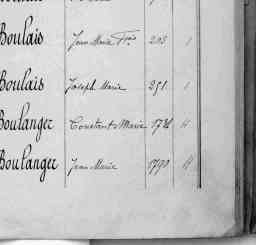 Boulais Jean Marie Fçois 203 1
Boulais Joseph Marie 251 1
Boulanger Constant Marie 1726 11
Boulanger Jean Marie 1790 11